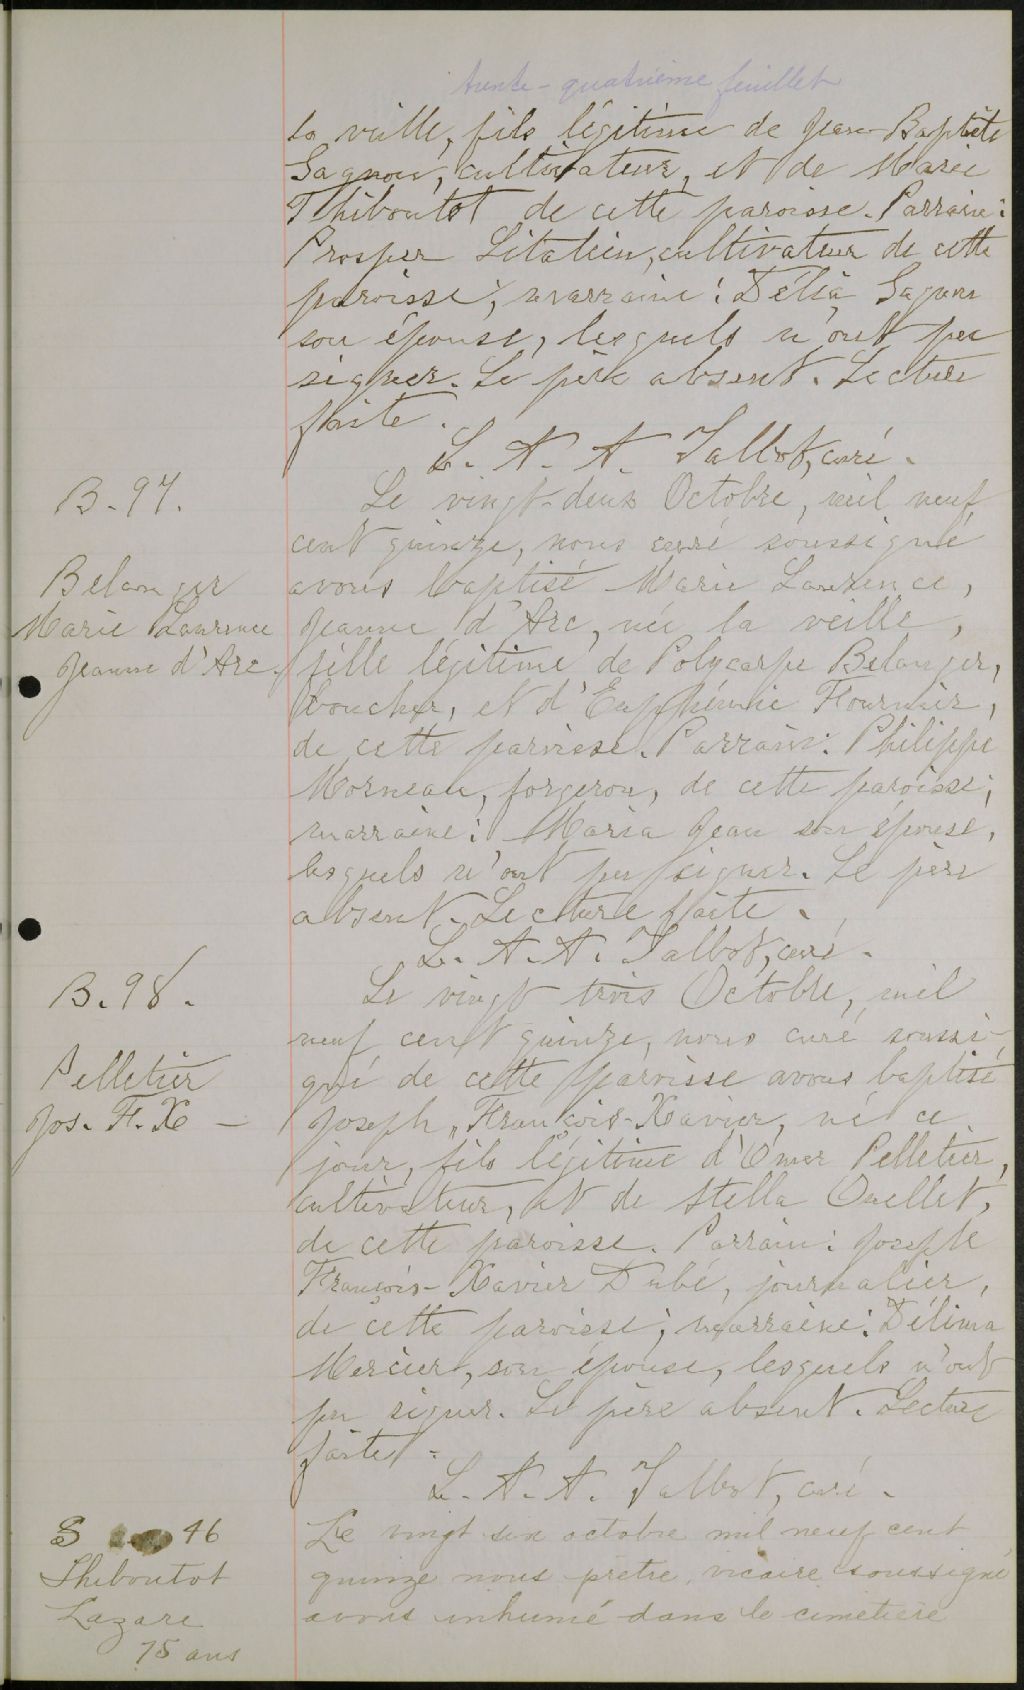 trente-quatrième feuillet
la veille, fils légitime de Jean-Baptiste
Gagnon, cultivateur, et de Marie
Thiboutot de cette paroisse. Parrain:
Prosper Litalien, cultivateur de cette
paroisse; marraine: Délia Gagnon
son épouse, lesquels n'ont pu
signer. Le père absent. Lecture
faite.
L. A. A. Talbot, curé.
B. 97.
Le vingt-deux Octobre, mil neuf
cent quinze, nous curé soussigné
Belanger
avons baptisé Marie Laurence,
Marie Laurence
Jeanne d'Arc, née la veille,
Jeanne d'Arc.
fille légitime de Polycarpe Belanger,
boucher, et d'Euphémie Fournier,
de cette paroisse. Parrain: Philippe
Morneau, forgeron, de cette paroisse;
marraine: Maria Jean son épouse,
lesquels n'ont pu signer. Le père
absent. Lecture faite.
L. A. A. Talbot, curé.
B. 98.
Le vingt trois Octobre, mil
neuf cent quinze, nous curé soussi-
Pelletier
gné de cette paroisse avons baptisé
Jos. F. X —
Joseph, François-Xavier, né ce
jour, fils légitime d'Omer Pelletier,
cultivateur, et de Stella Ouellet,
de cette paroisse. Parrain: Joseph
François-Xavier Dubé, journalier,
de cette paroisse; marraine: Délima
Mercier, son épouse, lesquels n'ont
pu signer. Le père absent. Lecture
faite.
L. A. A. Talbot, curé.
S 46
Le vingt six octobre mil neuf cent
Thiboutot
quinze nous prêtre, vicaire soussigné
Lazare
avons inhumé dans le cimetière
75 ans